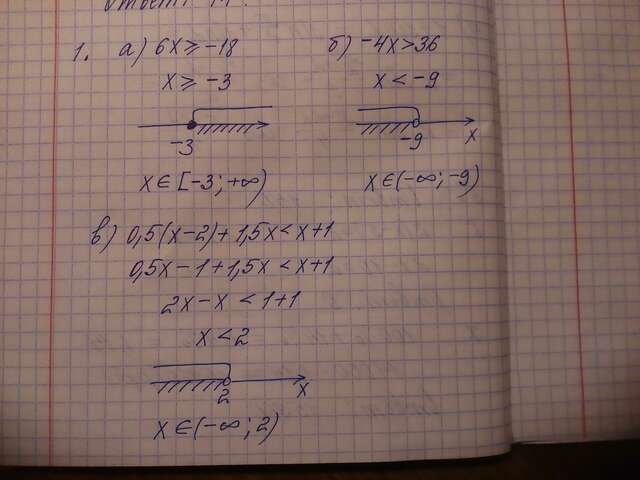 Ответ: 
1. а) 6x ≥ -18
x ≥ -3
-3
x ∈ [-3; +∞)
б) -4x > 36
x < -9
-9 x
x ∈ (-∞; -9)
в) 0,5(x-2) + 1,5x < x+1
0,5x - 1 + 1,5x < x+1
2x - x < 1+1
x < 2
2 x
x ∈ (-∞; 2)